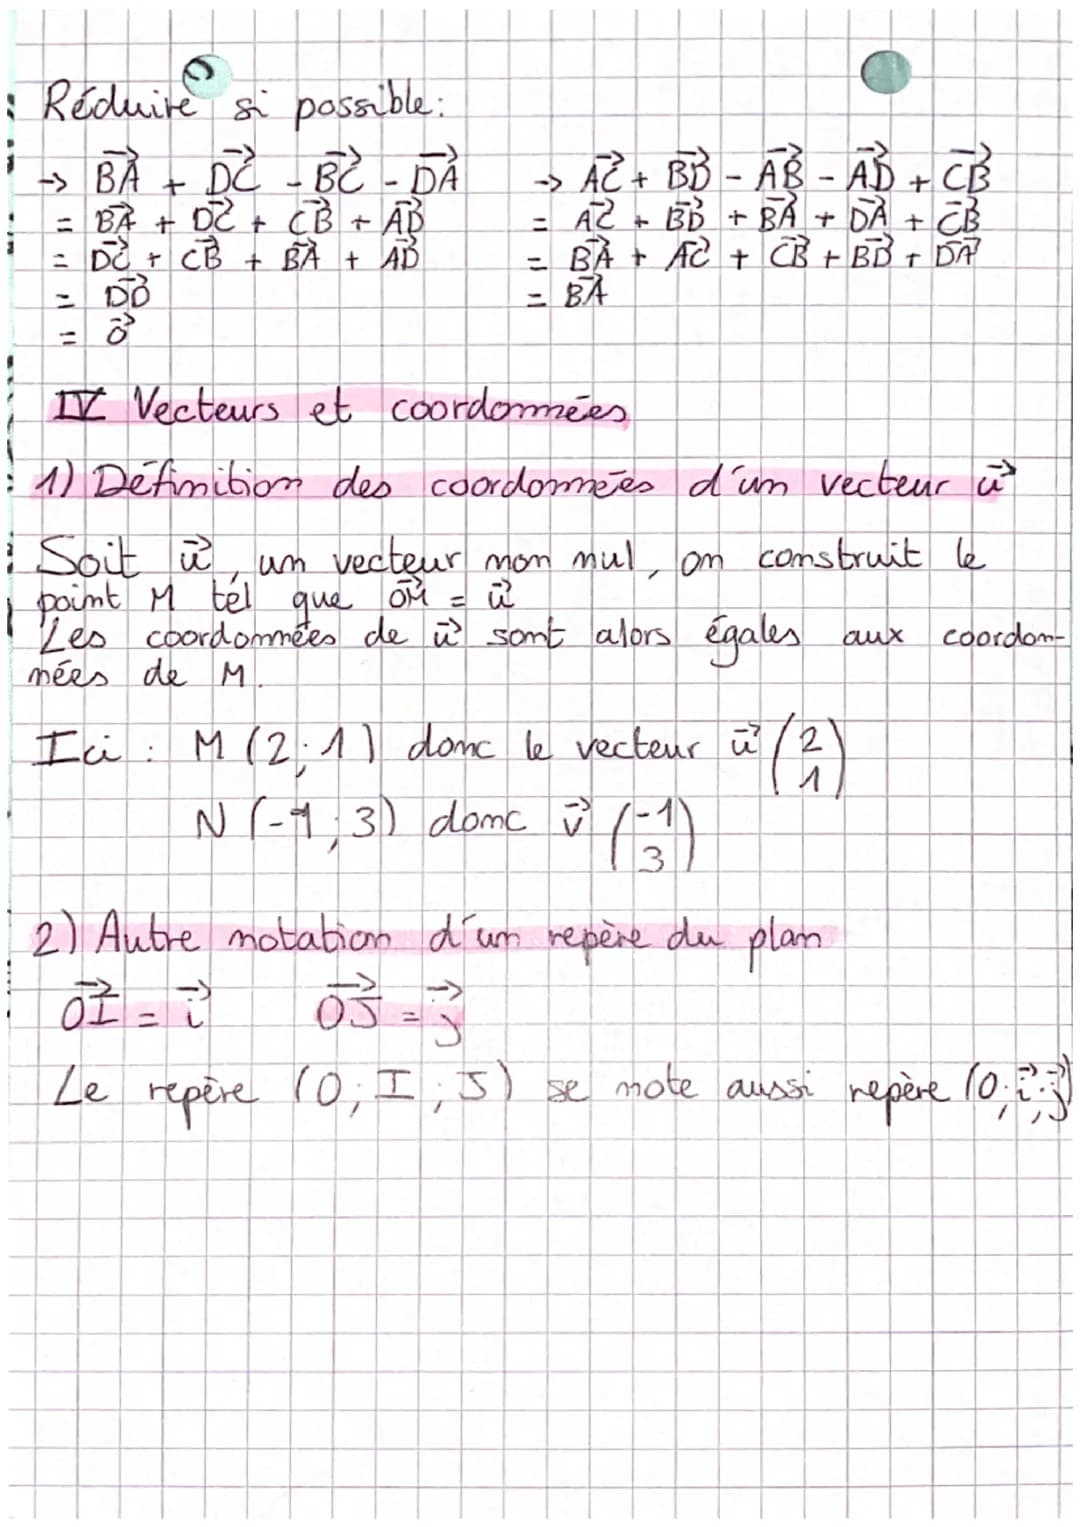 Réduire si possible:
→ BA⃗ + DC⃗ - BC⃗ - DA⃗
= BA⃗ + DC⃗ + CB⃗ + AD⃗
= DC⃗ + CB⃗ + BA⃗ + AD⃗
= DD⃗
= 0⃗
→ AC⃗ + BD⃗ - AB⃗ - AD⃗ + CB⃗
= AC⃗ + BD⃗ + BA⃗ + DA⃗ + CB⃗
= BA⃗ + AC⃗ + CB⃗ + BD⃗ + DA⃗
= BA⃗
IV Vecteurs et coordonnées
1) Définition des coordonnées d'un vecteur u⃗
Soit u⃗, un vecteur non nul, on construit le
point M tel que OM⃗ = u⃗
Les coordonnées de u⃗ sont alors égales aux coordon-
nées de M.
Ici : M (2;1) donc le vecteur u⃗ (2
1)
N (-1;3) donc v⃗ (-1
3)
2) Autre notation d'un repère du plan
OI⃗ = i⃗ OJ⃗ = j⃗
Le repère (O; I; J) se note aussi repère (O; i⃗; j⃗)